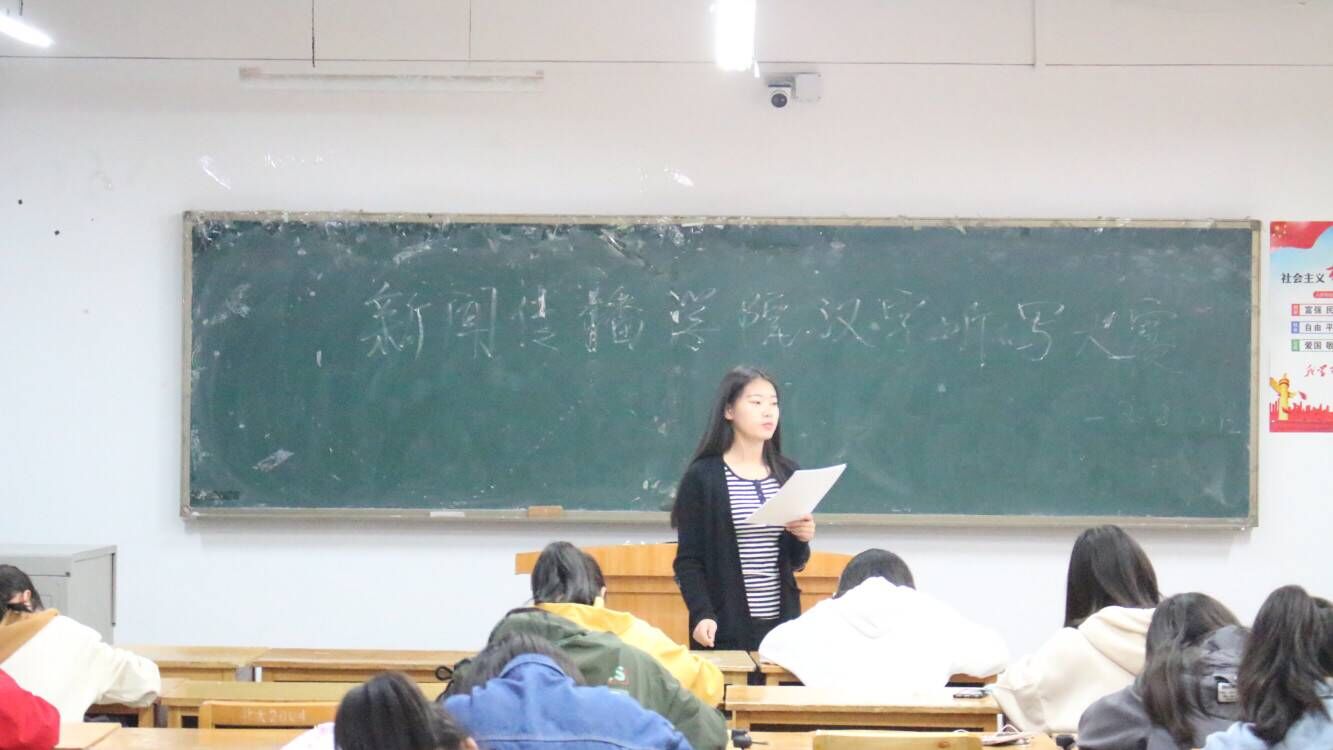 新闻传播学院汉字听写大赛
社会主义
富强 民
自由 平
爱国 敬